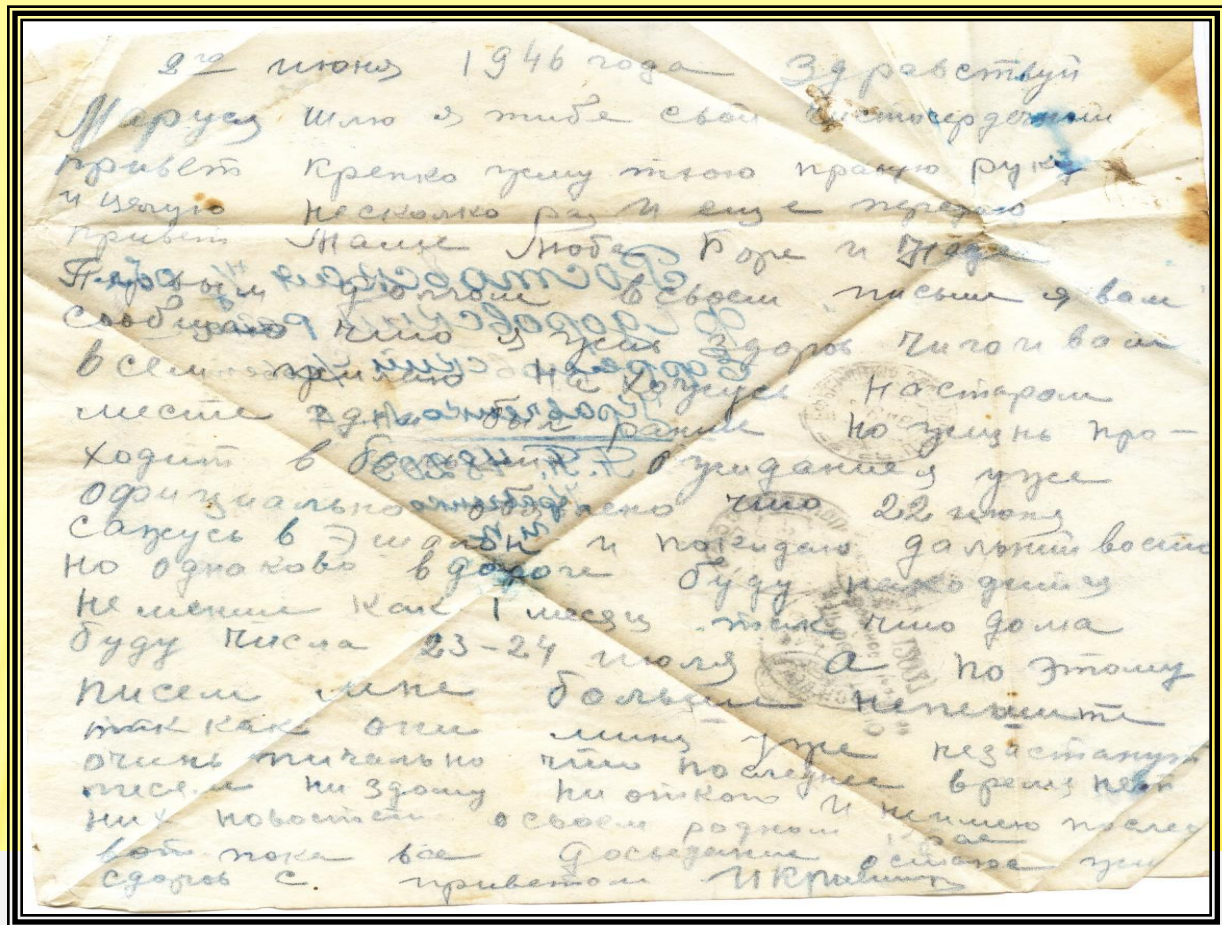 2го июня 1946 года Здравствуй
Маруся шлю я тибе свой чистосердечный
привет Крепко жму твою правую руку
и целую несколко раз И еще передаю
привет Маше Любе Боре и Наде
Первым долгом всвоем письме я вам
сообщаю что я жив здоров чиго и вам
всем желаю На хожусь Настаром
месте где и был ранше Но жизнь про-
ходит в ожидание уже
официально что 22 июня
сажусь в Эшалон и покидаю дальний восто
но однаково вдороге буду находится
неменше как 1 месяц так что дома
буду числа 23-24 июля А по этому
писем мне больше непешите
так как они миня уже незастанут
очинь пичально что последнее время нет
писем ни здому ни откого И неимею послед
них новостей освоем родном крае
вот пока все Досведание остаюс жив
сдоров с приветом